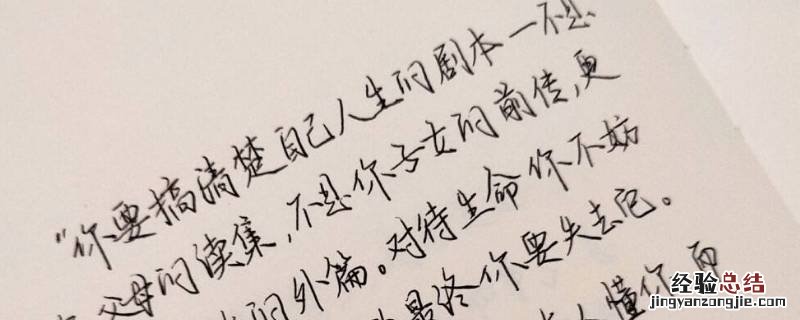 "你要搞清楚自己人生的剧本一不是
父母的续集,不是你子女的前传,更
的外篇。对待生命你不妨
最终你要失去它。
人懂你,而
经验总结
jingyanzongjie.com